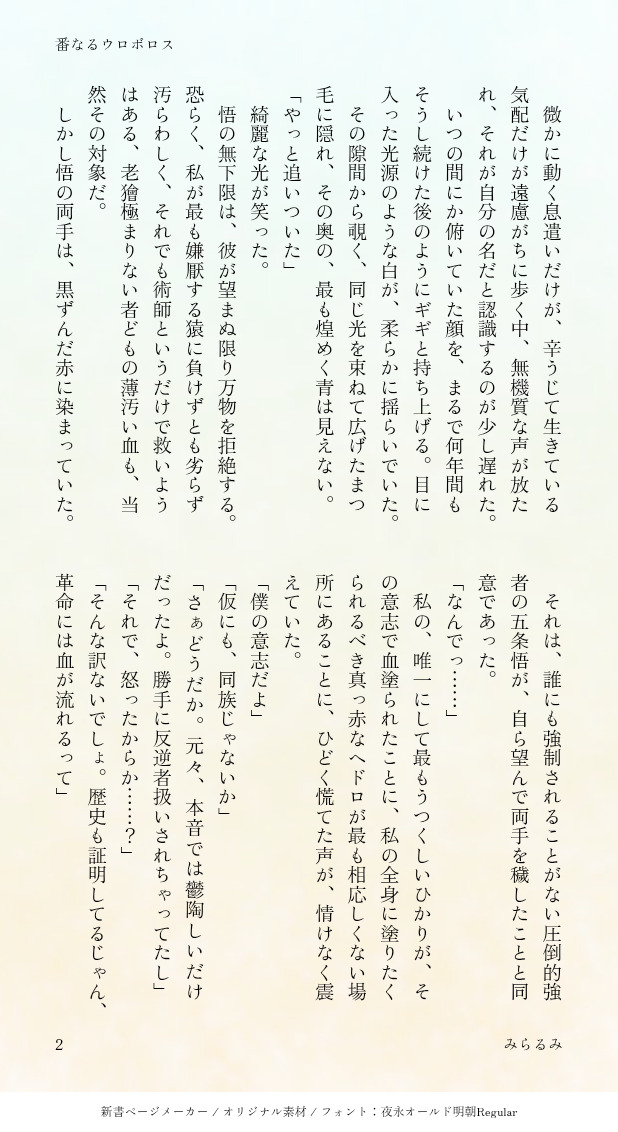 番なるウロボロス
　微かに動く息遣いだけが、辛うじて生きている
気配だけが遠慮がちに歩く中、無機質な声が放た
れ、それが自分の名だと認識するのが少し遅れた。
　いつの間にか俯いていた顔を、まるで何年間も
そうし続けた後のようにギギと持ち上げる。目に
入った光源のような白が、柔らかに揺らいでいた。
　その隙間から覗く、同じ光を束ねて広げたまつ
毛に隠れ、その奥の、最も煌めく青は見えない。
「やっと追いついた」
　綺麗な光が笑った。
　悟の無下限は、彼が望まぬ限り万物を拒絶する。
恐らく、私が最も嫌厭する猿に負けずとも劣らず
汚らわしく、それでも術師というだけで救いよう
はある、老獪極まりない者どもの薄汚い血も、当
然その対象だ。
　しかし悟の両手は、黒ずんだ赤に染まっていた。
　それは、誰にも強制されることがない圧倒的強
者の五条悟が、自ら望んで両手を穢したことと同
意であった。
「なんでっ……」
　私の、唯一にして最もうつくしいひかりが、そ
の意志で血塗られたことに、私の全身に塗りたく
られるべき真っ赤なヘドロが最も相応しくない場
所にあることに、ひどく慌てた声が、情けなく震
えていた。
「僕の意志だよ」
「仮にも、同族じゃないか」
「さぁどうだか。元々、本音では鬱陶しいだけ
だったよ。勝手に反逆者扱いされちゃってたし」
「それで、怒ったからか……？」
「そんな訳ないでしょ。歴史も証明してるじゃん、
革命には血が流れるって」
2
みらるみ
新書ページメーカー / オリジナル素材 / フォント：夜永オールド明朝Regular